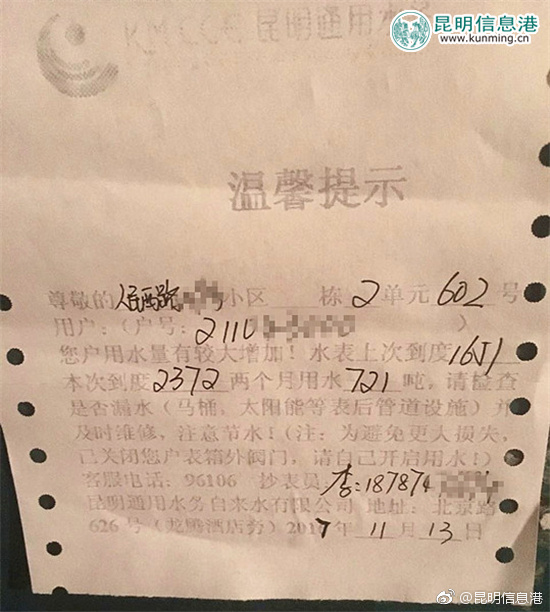 昆明信息港
www.kunming.cn
昆明通用水务
温馨提示
尊敬的人民西路小区 栋2单元602号
用户:(户号:2110 )
您户用水量有较大增加!水表上次到度1651
本次到度2372两个月用水721吨,请检查
是否漏水(马桶,太阳能等表后管道设施)并
及时维修,注意节水!(注:为避免更大损失,
已关闭您户表箱外阀门,请自己开启用水!)
客服电话:96106 抄表员 李:187874
昆明通用水务自来水有限公司 地址:北京路
626号(龙腾酒店旁)2017年11月13日
@昆明信息港